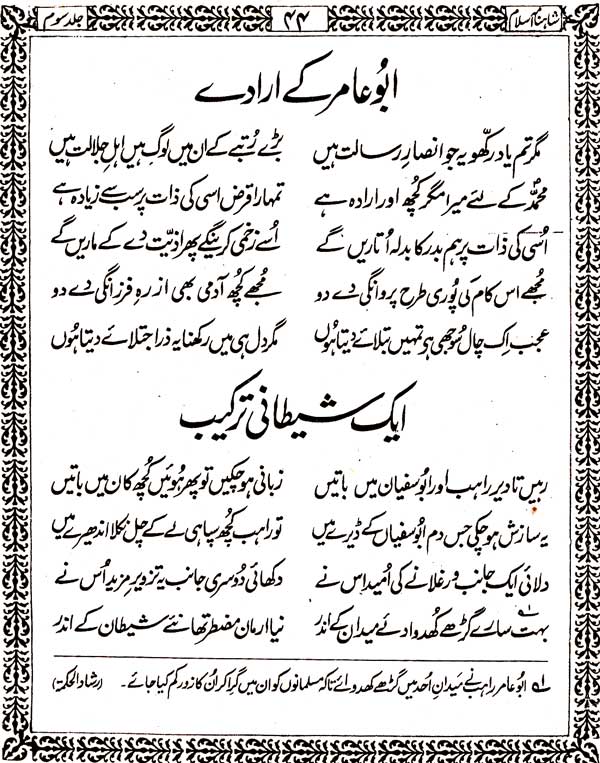 شاہنامہ اسلام ۴۴ جلد سوم
ابُو عامر کے ارادے
مگر تم یاد رکھو یہ جو انصارِ رسالت ہیں بڑے رُتبے کے ان میں لوگ ہیں اہلِ جلالت ہیں
محمدؐ کے لئے میرا مگر کُچھ اور ارادہ ہے تمہارا قرض اسی کی ذات پر سب سے زیادہ ہے
اُسی کی ذات پر ہم بدر کا بدلہ اُتاریں گے اُسے زخمی کرینگے پھر اذیّت دے کے ماریں گے
مجھے اس کام کی پُوری طرح پروانگی دے دو مُجھے کُچھ آدمی بھی از رہِ فرزانگی دے دو
عجب اِک چال سُوجھی ہو تمہیں بتلائے دیتا ہُوں مگر دل ہی میں رکھنا یہ ذرا جتلائے دیتا ہُوں
ایک شیطانی ترکیب
رہیں تا دیر راہب اور ابُوسفیان میں باتیں زبانی ہو چکیں تو پھر ہوئیں کُچھ کان میں باتیں
یہ سازش ہو چکی جس دم ابُوسفیاں کے ڈیرے میں تو راہب کُچھ سپاہی لے کے چل نکلا اندھیرے میں
دلائی ایک جانب ورغلانے کی اُمید اس نے دکھائی دُوسری جانب یہ تزویرِ مزید اُس نے
بہت سارے گڑھے کھُدوا دئے میدان کے اندر ؎۱ نیا ارمان مضطر تھا نئے شیطان کے اندر
؎۱ ابُو عامر راہب نے میدانِ اُحد میں گڑھے کھدوائے تاکہ مسلمانوں کو ان میں گرا کر اُن کا زور کم کیا جائے۔ (رشاد الحکمۃ)